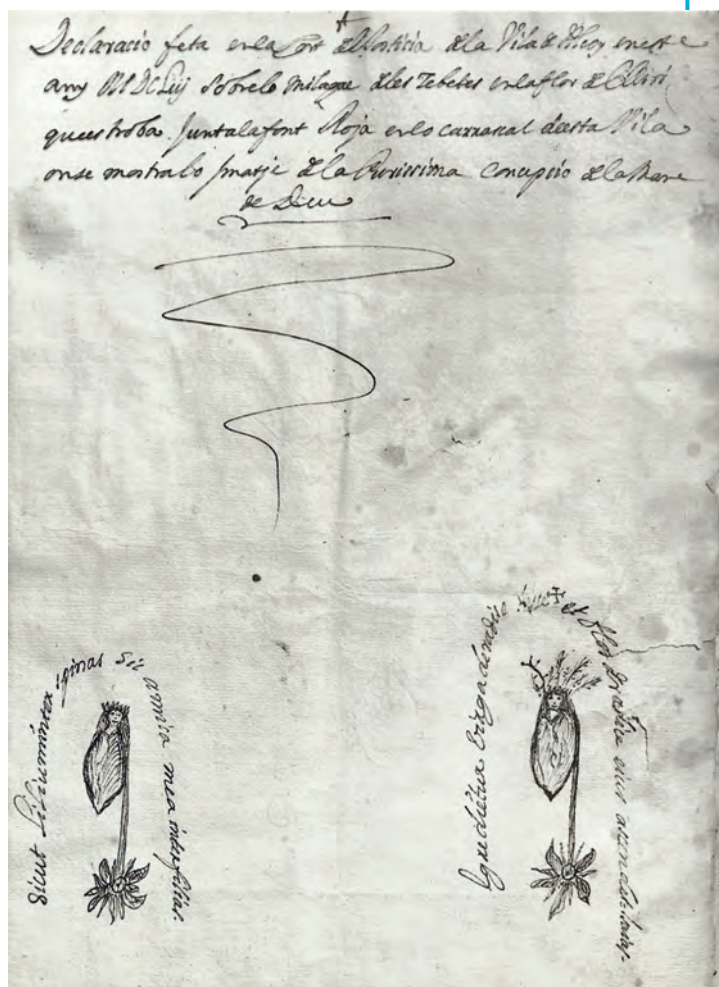 Declaracio feta en la Cort del Justicia dela Vila de Alcoy en est
any MDCLiij sobre lo milacre deles Zebetes en la flor del Lliri
que es troba Junta la font Roja en lo carrascal de esta Vila
on se mostra lo Imatje dela Purissima Concepcio dela Mare
de Deu
Sicut Lilium inter spinas sic amica mea inter filias.
Egredietur Virga de radice Jesse et flos de radice eius ascendet. Isaias.